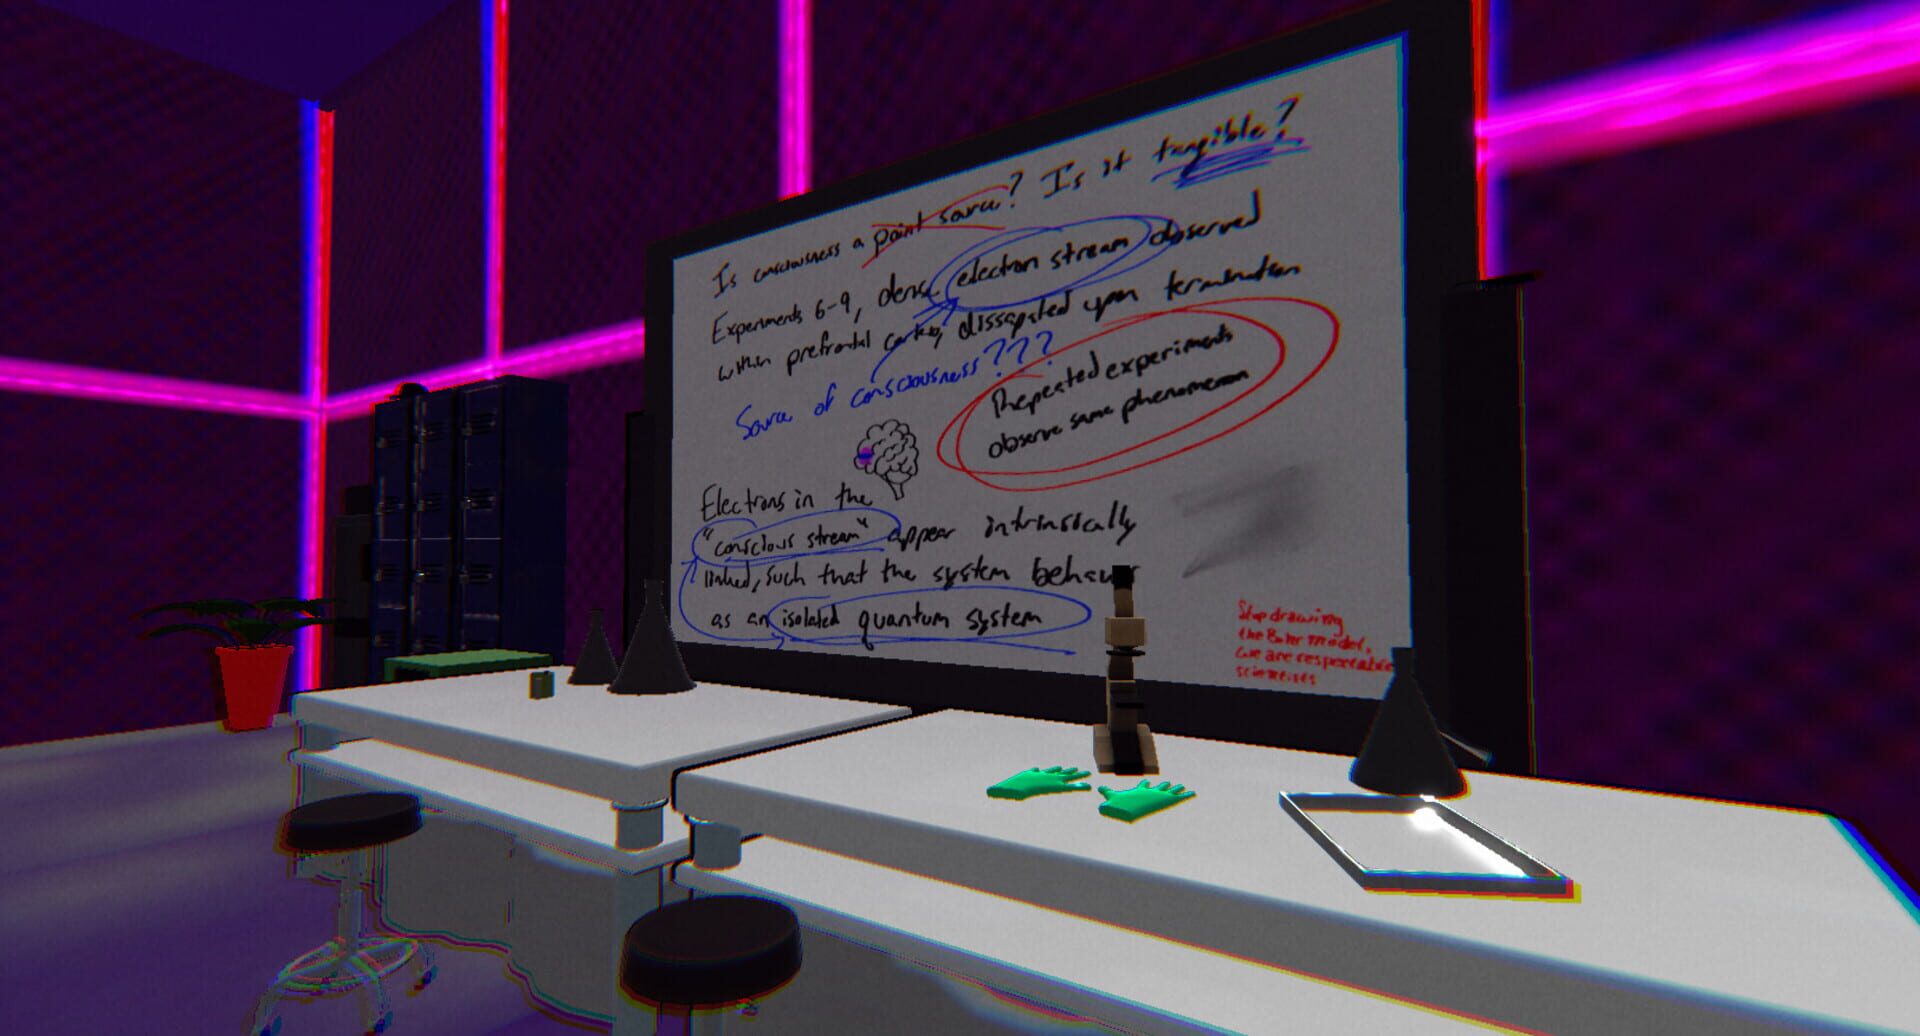 Is consciousness a point source? Is it tangible?
Experiments 6-9, dense electron stream observed
within prefrontal cortex, dissapated upon termination
Source of consciousness???
Repeated experiments
observe same phenomenon
Electrons in the
"conscious stream" appear intrinsically
linked, such that the system behavior
as an isolated quantum system
Stop drawing
the Bohr model,
we are respectable
scientists